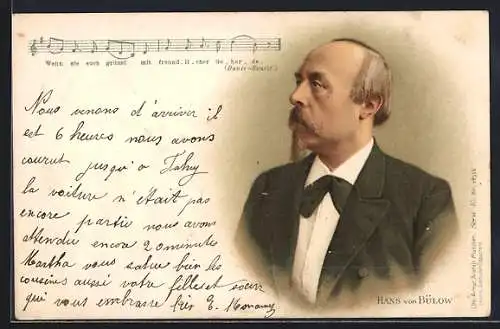 Wenn sie euch grüsst mit freund.li.cher Ge.ber.de.
(Dante-Sonett.)
Nous venons d'arriver il
est 6 heures nous avons
couru jusqu'a
la voiture n'était pas
encore partie nous avons
attendu encor 20 minutes
Martha vous salue bien les
cousines aussi votre fille et soeur
qui vous embrasse bien E.
HANS VON BÜLOW